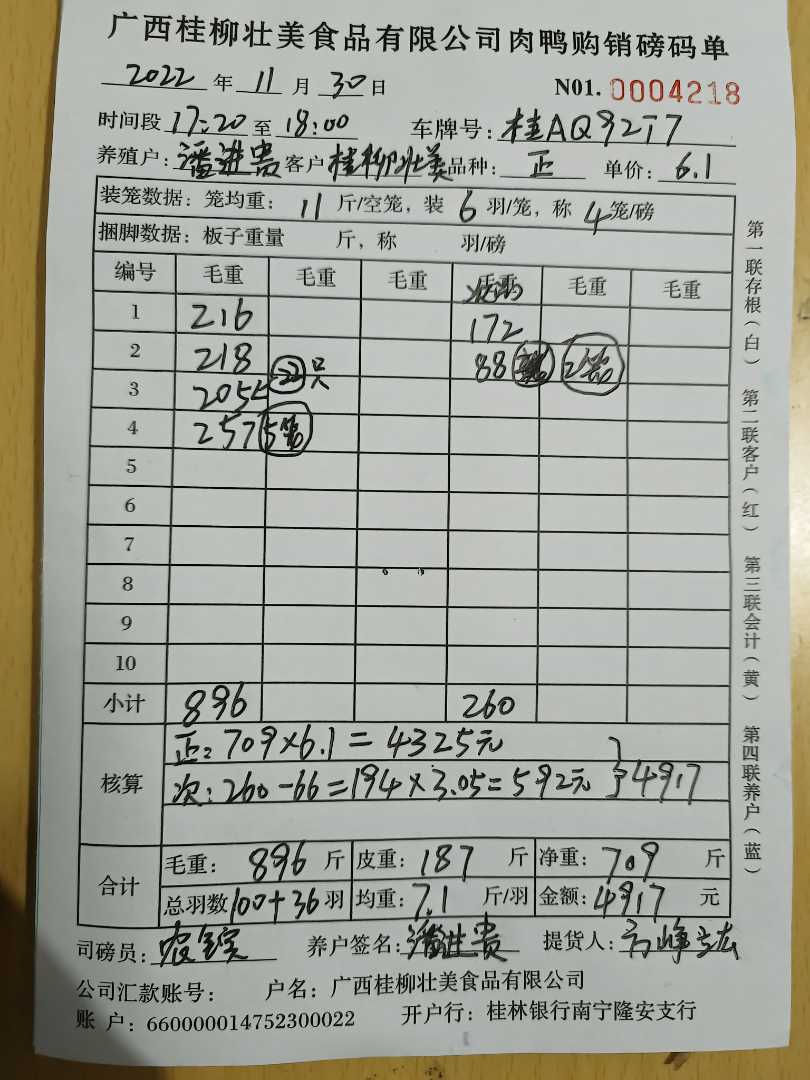 广西桂柳壮美食品有限公司肉鸭购销磅码单
2022 年 11 月 30 日 N01. 0004218
时间段 17:20 至 18:00 车牌号: 桂AQ92T7
养殖户: 潘进贵 客户 桂柳壮美 品种: 正 单价: 6.1
装笼数据: 笼均重: 11 斤/空笼, 装 6 羽/笼, 称 4 笼/磅
捆脚数据: 板子重量 斤, 称 羽/磅
编号 毛重 毛重 毛重 毛重 毛重
1 216 172
2 218 88 2笼
3 205 22只
4 257 5笼
5
6
7
8
9
10
小计 896 260
核算
正: 709×6.1=4325元
次: 260-66=194×3.05=592元 } 4917
合计
毛重: 896 斤 皮重: 187 斤 净重: 709 斤
总羽数 100+36 羽 均重: 7.1 斤/羽 金额: 4917 元
司磅员: 养户签名: 潘进贵 提货人:
公司汇款账号: 户名: 广西桂柳壮美食品有限公司
账 户: 660000014752300022 开户行: 桂林银行南宁隆安支行
第一联存根(白) 第二联客户(红) 第三联会计(黄) 第四联养户(蓝)